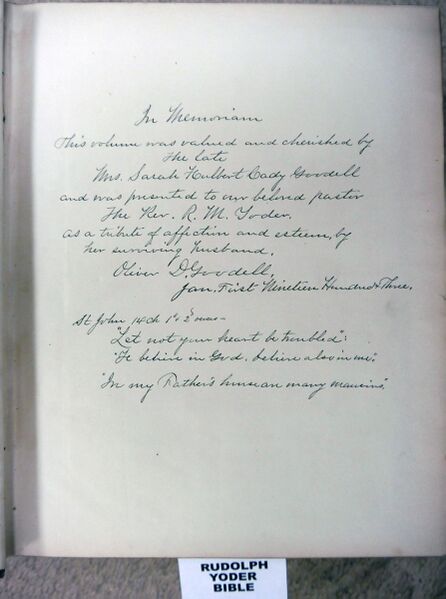 In Memoriam
This volume was valued and cherished by
the late
Mrs. Sarah Hulbert Cady Goodell
and was presented to our beloved pastor
The Rev. R. M. Yoder.
as a tribute of affection and esteem, by
her surviving husband.
Oliver D. Goodell.
Jan. First Nineteen Hundred & Three.
St John 14 ch 1st & 2d verses
"Let not your heart be troubled":
"Ye believe in God. believe also in me."
"In my Father's house are many mansions",
RUDOLPH
YODER
BIBLE